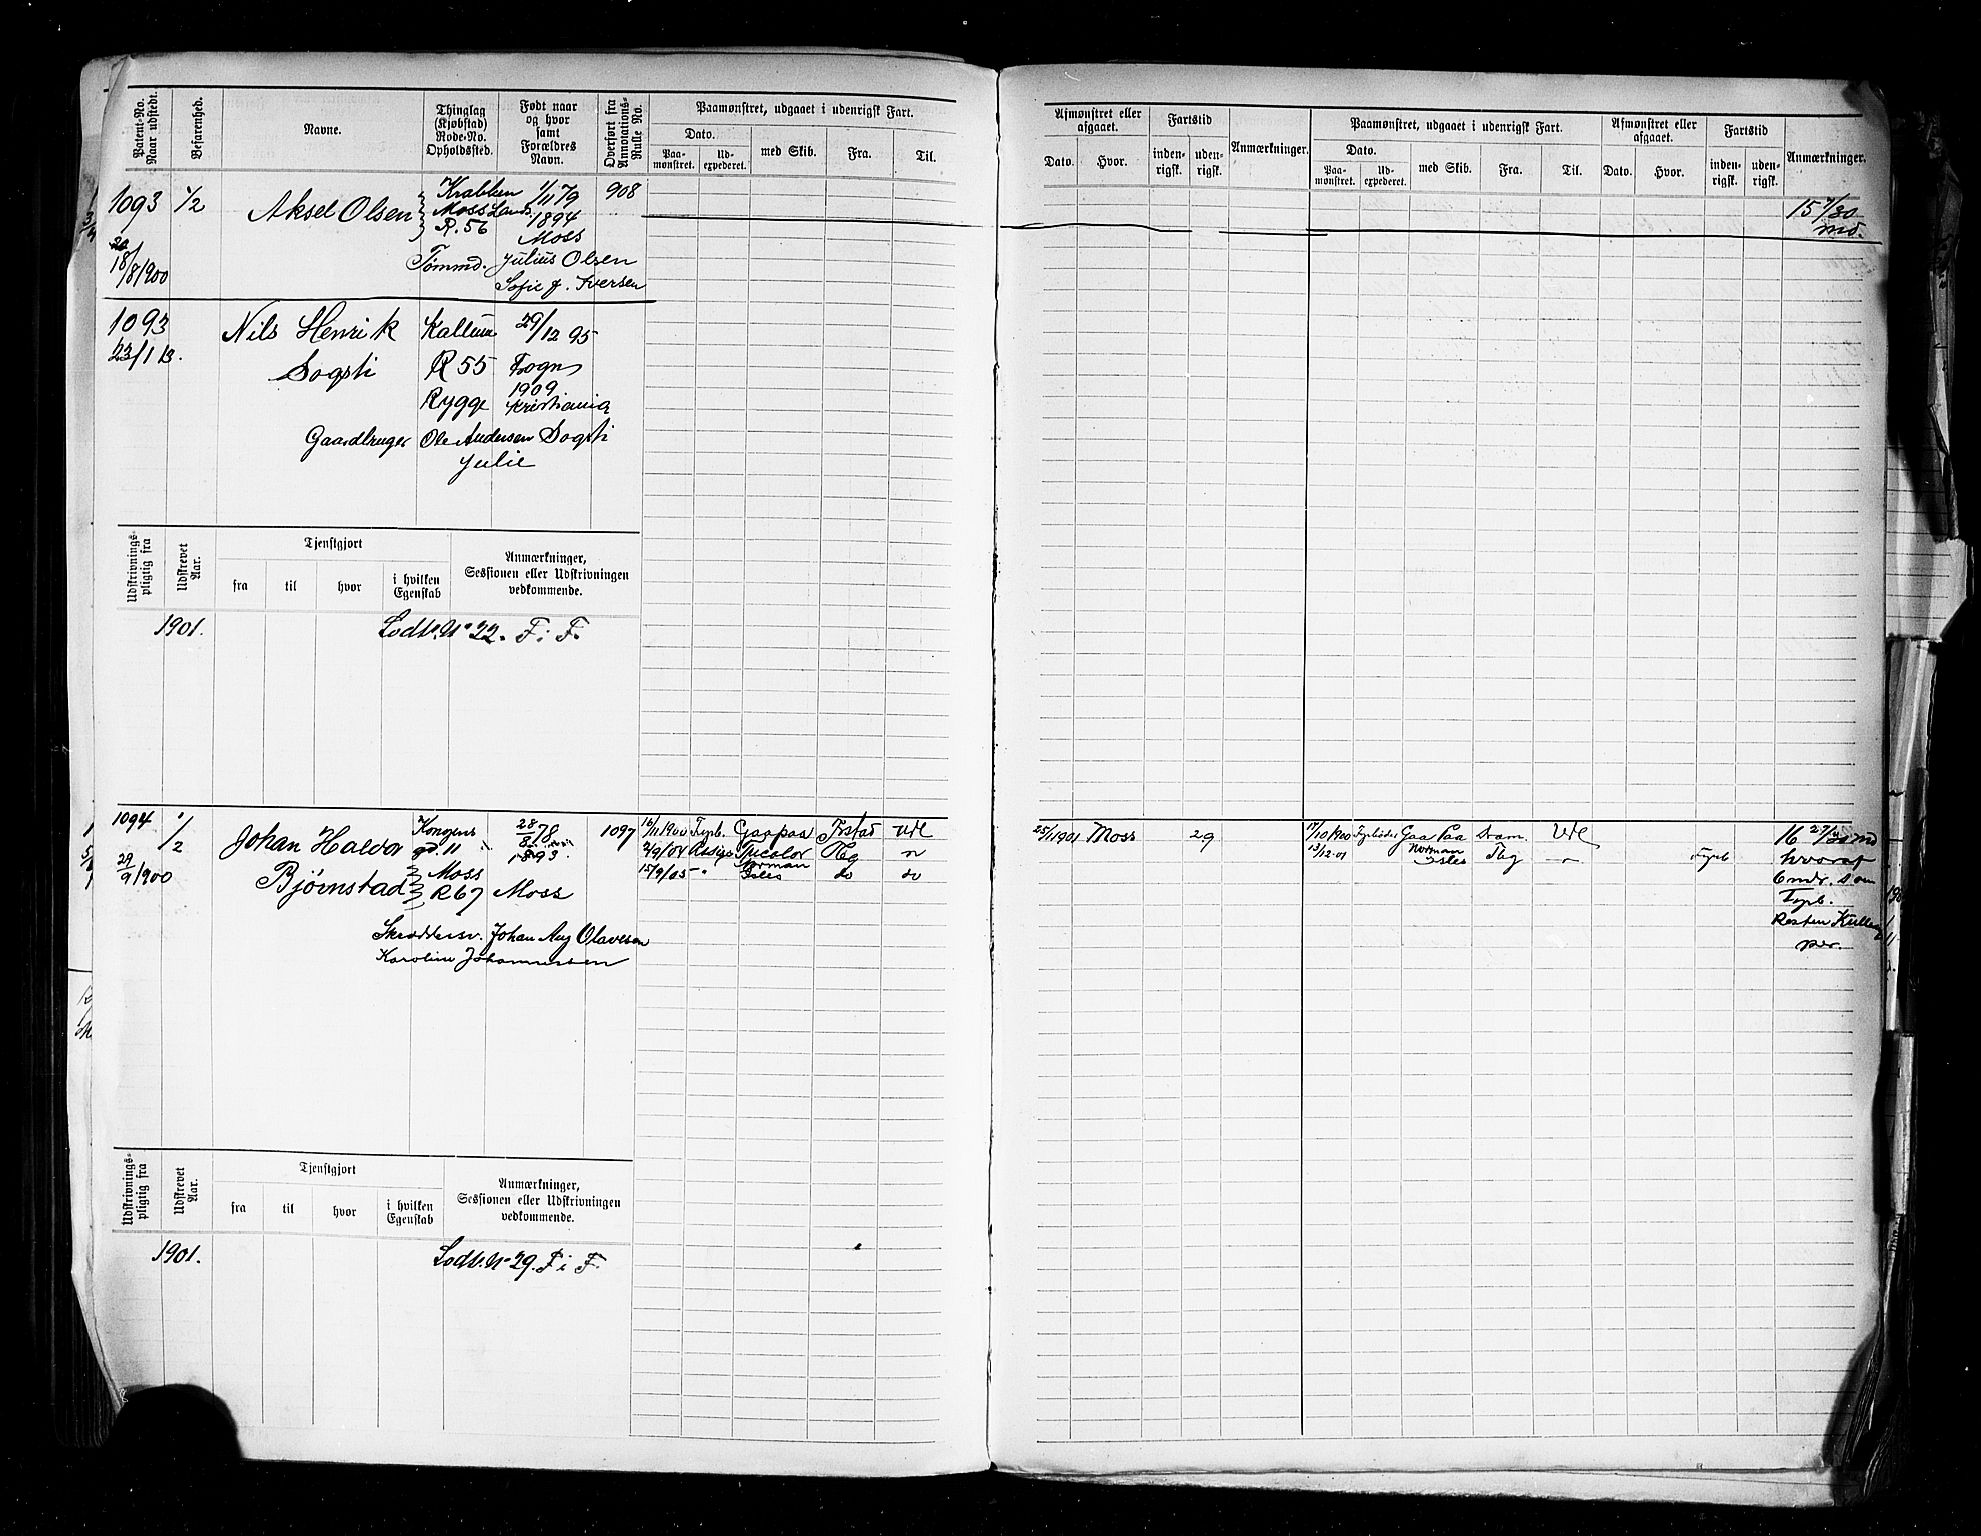 Patent-No. Naar udstedt.
Befarenhed.
Navne.
Thinglag (Kjøbstad) Rode-No. Opholdssted.
Født naar og hvor samt Forældres Navn.
Overført fra Annotations-Rulle No.
Paamønstret, udgaaet i udenrigsk Fart.
Dato.
Paamønstret.
Udexpederet.
med Skib.
Fra.
Til.
Afmønstret eller afgaaet.
Dato.
Hvor.
Fartstid
indenrigsk.
udenrigsk.
Anmærkninger.
Paamønstret, udgaaet i udenrigsk Fart.
Dato.
Paamønstret.
Udexpederet.
med Skib.
Fra.
Til.
Afmønstret eller afgaaet.
Dato.
Hvor.
Fartstid
indenrigsk.
udenrigsk.
Anmærkninger.
1093 1/2 Aksel Olsen Krabben 1/11 79 908
Moss Lands. 1894
R. 56 Moss
18/8 1900 Tømmd. Julius Olsen
Sofie f. Iversen
15 7/30 md.
1093 Nils Henrik Kallum 29/12 95
23/1 13. Sogsti R 55 Sogn
1909
Rygge Kristiania
Gaardbruger Ole Andersen Sogsti
Julie
Udskrivningspligtig fra
Udskrevet Aar.
Tjenstgjort
fra
til
hvor
i hvilken Egenskab
Anmærkninger, Sessionen eller Udskrivningen vedkommende.
1901. Lodtr. No 22. F i F.
1094 1/2 Johan Halvor Kongens 28/8 78 1097 16/11 1900 Fyrb. Gaapaa Frstad Udl
29/9 1900 Bjørnstad gd. 11 1893. 2/9/04 Tricolor Tbg "
Moss 12/9/05 " Norman Isles do do
R 67 Moss
Skræddersv. Johan Aug Olavesen
Karoline Johannessen
25/1 1901 Moss 29 17/10 1900 Gaa Paa Dram. Udl
13/12-01 Norman Isles Tbg " Fyrb
16 27/30 md
hvoraf
6 mdr. som
Fyrb.
Resten Kullem
per.
Udskrivningspligtig fra
Udskrevet Aar.
Tjenstgjort
fra
til
hvor
i hvilken Egenskab
Anmærkninger, Sessionen eller Udskrivningen vedkommende.
1901. Lodtr. No 29. F i F.